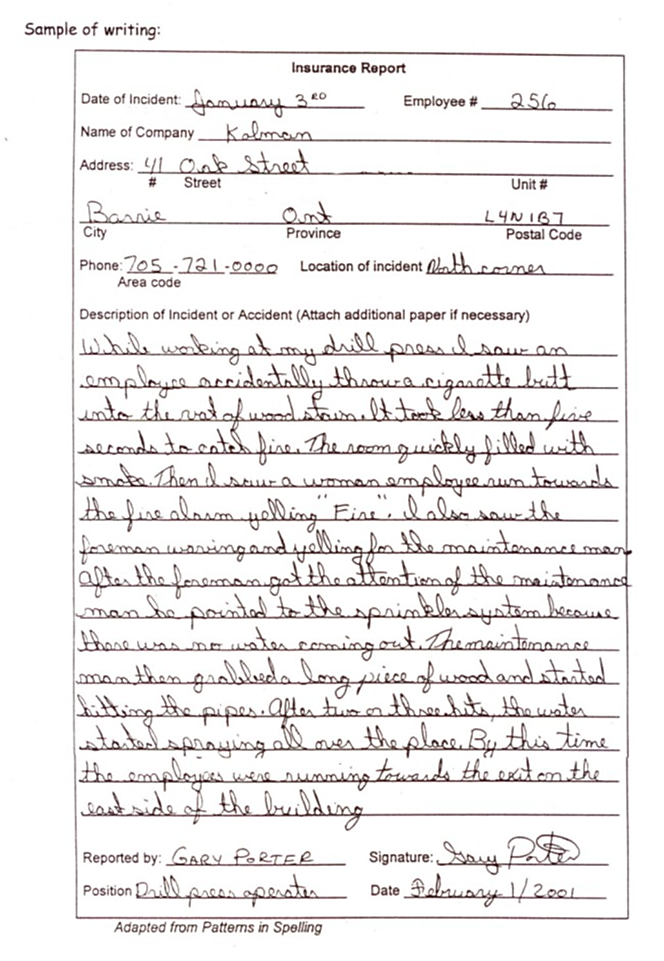 Sample of writing:
Insurance Report
Date of Incident: January 3RD Employee # 256
Name of Company Kalman
Address: 41 Oak Street
# Street Unit #
Barrie Ont L4N 1B7
City Province Postal Code
Phone: 705-721-0000 Location of incident North corner
Area code
Description of Incident or Accident (Attach additional paper if necessary)
While working at my drill press I saw an
employee accidentally throw a cigarette butt
into the vat of wood stain. It took less than five
seconds to catch fire. The room quickly filled with
smoke. Then I saw a woman employee run towards
the fire alarm yelling "Fire". I also saw the
foreman waving and yelling for the maintenance man.
After the foreman got the attention of the maintenance
man he pointed to the sprinkler system because
there was no water coming out. The maintenance
man then grabbed a long piece of wood and started
hitting the pipes. After two or three hits, the water
started spraying all over the place. By this time
the employees were running towards the exit on the
east side of the building
Reported by: GARY PORTER Signature: Gary Porter
Position Drill press operator Date February 1/2001
Adapted from Patterns in Spelling